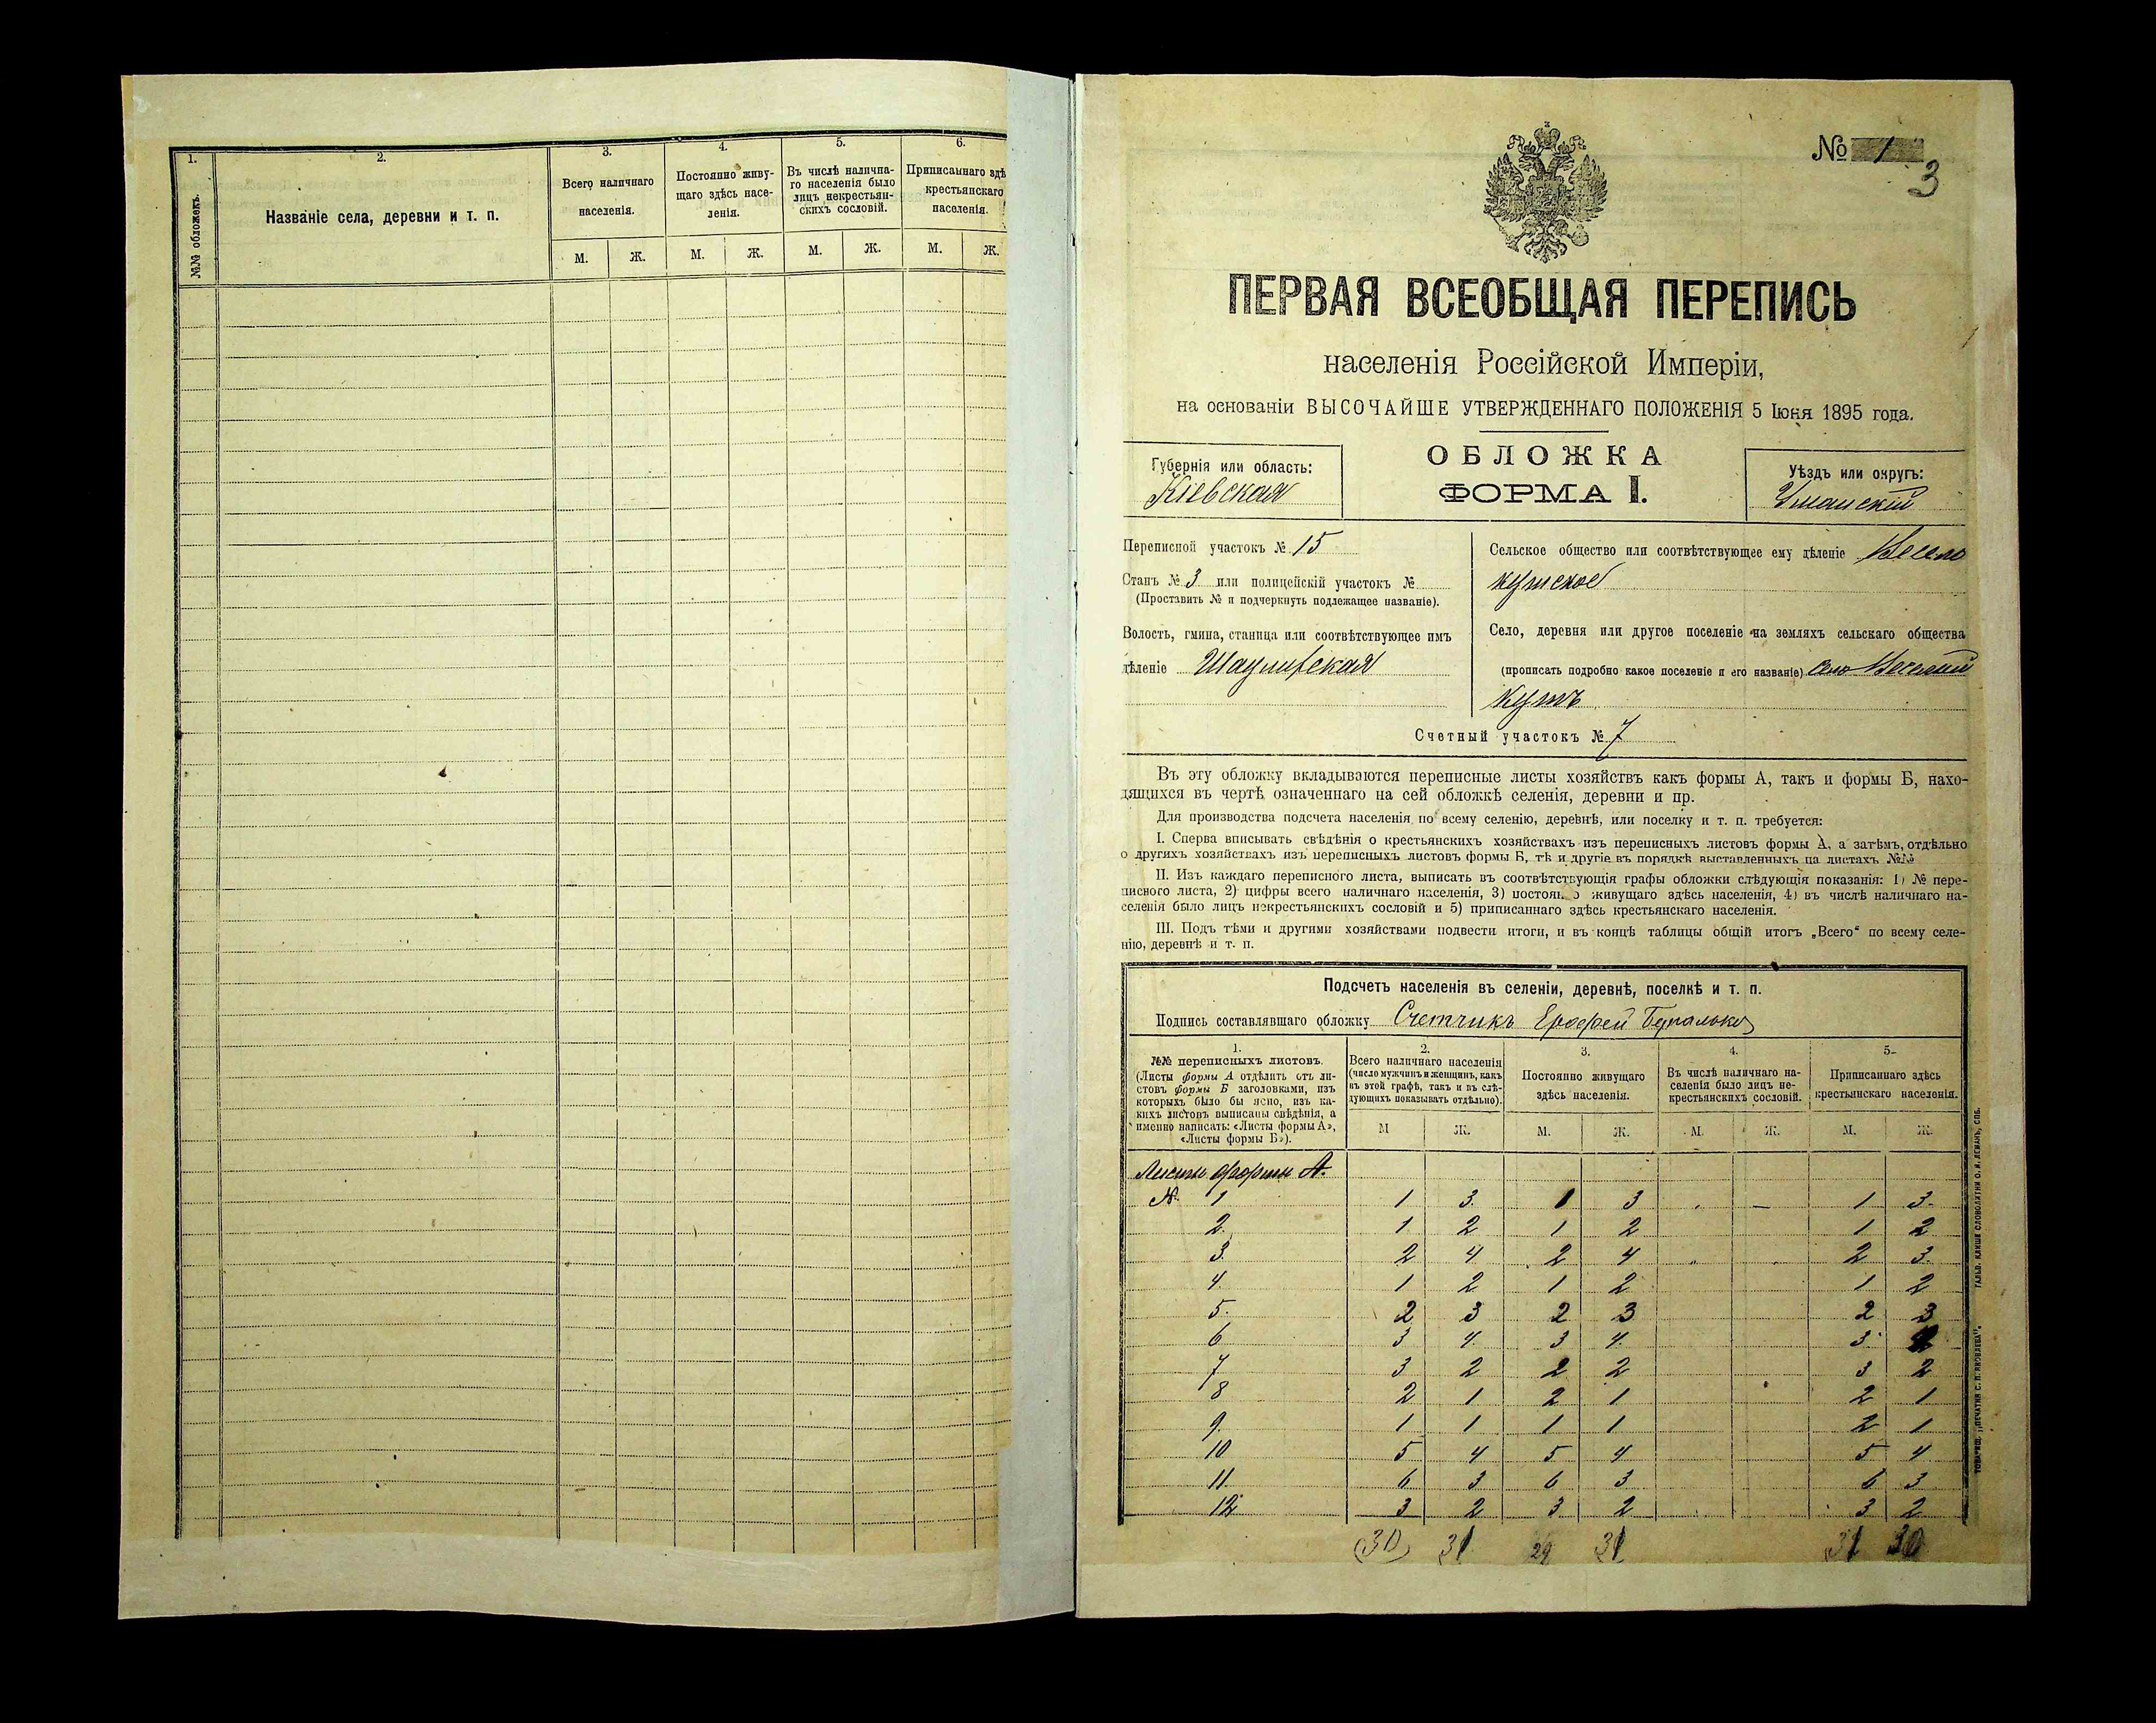 1.
2.
3.
4.
5.
6.
№№ обложекъ.
Названіе села, деревни и т. п.
Всего наличнаго
населенія.
Постоянно живу-
щаго здѣсь насе-
ленія.
Въ числѣ налична-
го населенія было
лицъ некрестьян-
скихъ сословій.
Приписаннаго здѣ
крестьянскаго
населенія.
М. Ж. М. Ж. М. Ж. М. Ж.
№ 1
3
ПЕРВАЯ ВСЕОБЩАЯ ПЕРЕПИСЬ
населенія Россійской Имперіи,
на основаніи ВЫСОЧАЙШЕ УТВЕРЖДЕННАГО ПОЛОЖЕНІЯ 5 Іюня 1895 года.
Губернія или область:
Кіевская
ОБЛОЖКА
ФОРМА I.
Уѣздъ или округъ:
Уманскій
Переписной участокъ № 15
Станъ № 3 или полицейскій участокъ №
(Проставить № и подчеркнуть подлежащее названіе).
Волость, гмина, станица или соотвѣтствующее имъ
дѣленіе
Сельское общество или соотвѣтствующее ему дѣленіе Весело
кутское
Село, деревня или другое поселеніе на земляхъ сельскаго общества
(прописать подробно какое поселеніе и его названіе) село Веселый
Кутъ
Счетный участокъ № 7
Въ эту обложку вкладываются переписные листы хозяйствъ какъ формы А, такъ и формы Б, нахо-
дящихся въ чертѣ означеннаго на сей обложкѣ селенія, деревни и пр.
Для производства подсчета населенія по всему селенію, деревнѣ, или поселку и т. п. требуется:
I. Сперва вписывать свѣдѣнія о крестьянскихъ хозяйствахъ изъ переписныхъ листовъ формы А, а затѣмъ, отдѣльно
о другихъ хозяйствахъ изъ переписныхъ листовъ формы Б, тѣ и другіе въ порядкѣ выставленныхъ на листахъ №№
II. Изъ каждаго переписного листа, выписать въ соотвѣтствующія графы обложки слѣдующія показанія: 1) № пере-
писного листа, 2) цифры всего наличнаго населенія, 3) постоян. о живущаго здѣсь населенія, 4) въ числѣ наличнаго на-
селенія было лицъ некрестьянскихъ сословій и 5) приписаннаго здѣсь крестьянскаго населенія.
III. Подъ тѣми и другими хозяйствами подвести итоги, и въ концѣ таблицы общій итогъ „Всего“ по всему селе-
нію, деревнѣ и т. п.
Подсчетъ населенія въ селеніи, деревнѣ, поселкѣ и т. п.
Подпись составлявшаго обложку Счетчикъ Ерофей
1.
№№ переписныхъ листовъ.
(Листы формы А отдѣлить отъ ли-
стовъ формы Б заголовками, изъ
которыхъ было бы ясно, изъ ка-
кихъ листовъ выписаны свѣдѣнія, а
именно написать: «Листы формы А»,
«Листы формы Б»).
2.
Всего наличнаго населенія
(число мужчинъ и женщинъ, какъ
въ этой графѣ, такъ и въ слѣ-
дующихъ показывать отдѣльно).
3.
Постоянно живущаго
здѣсь населенія.
4.
Въ числѣ наличнаго на-
селенія было лицъ не-
крестьянскихъ сословій.
5.
Приписаннаго здѣсь
крестьянскаго населенія.
М Ж. М. Ж. М. Ж. М. Ж.
Листы формы А.
№ 1 1 3. 1 3 - 1 3.
2. 1 2 1 2 1 2
3. 2 4 2 4 2 3.
4. 1 2 1 2 1 2
5. 2 3 2 3 2 3
6 3 4. 3 4. 3.
7 3 2 2 2 3 2
8 2 1 2 1 2 1
9. 1 1 1 1 2 1
10 5 4 5 4 5 4
11 6 3 6 3 6 3
12 3 2 3 2 3 2
(30) 31 29 31 31 30
ТОВАРИЩ. „ПЕЧАТНЯ С. П. ЯКОВЛЕВА“. ГАЛЬВ. КЛИШЕ СЛОВОЛИТНИ О. И. ЛЕМАНЪ, СПБ.